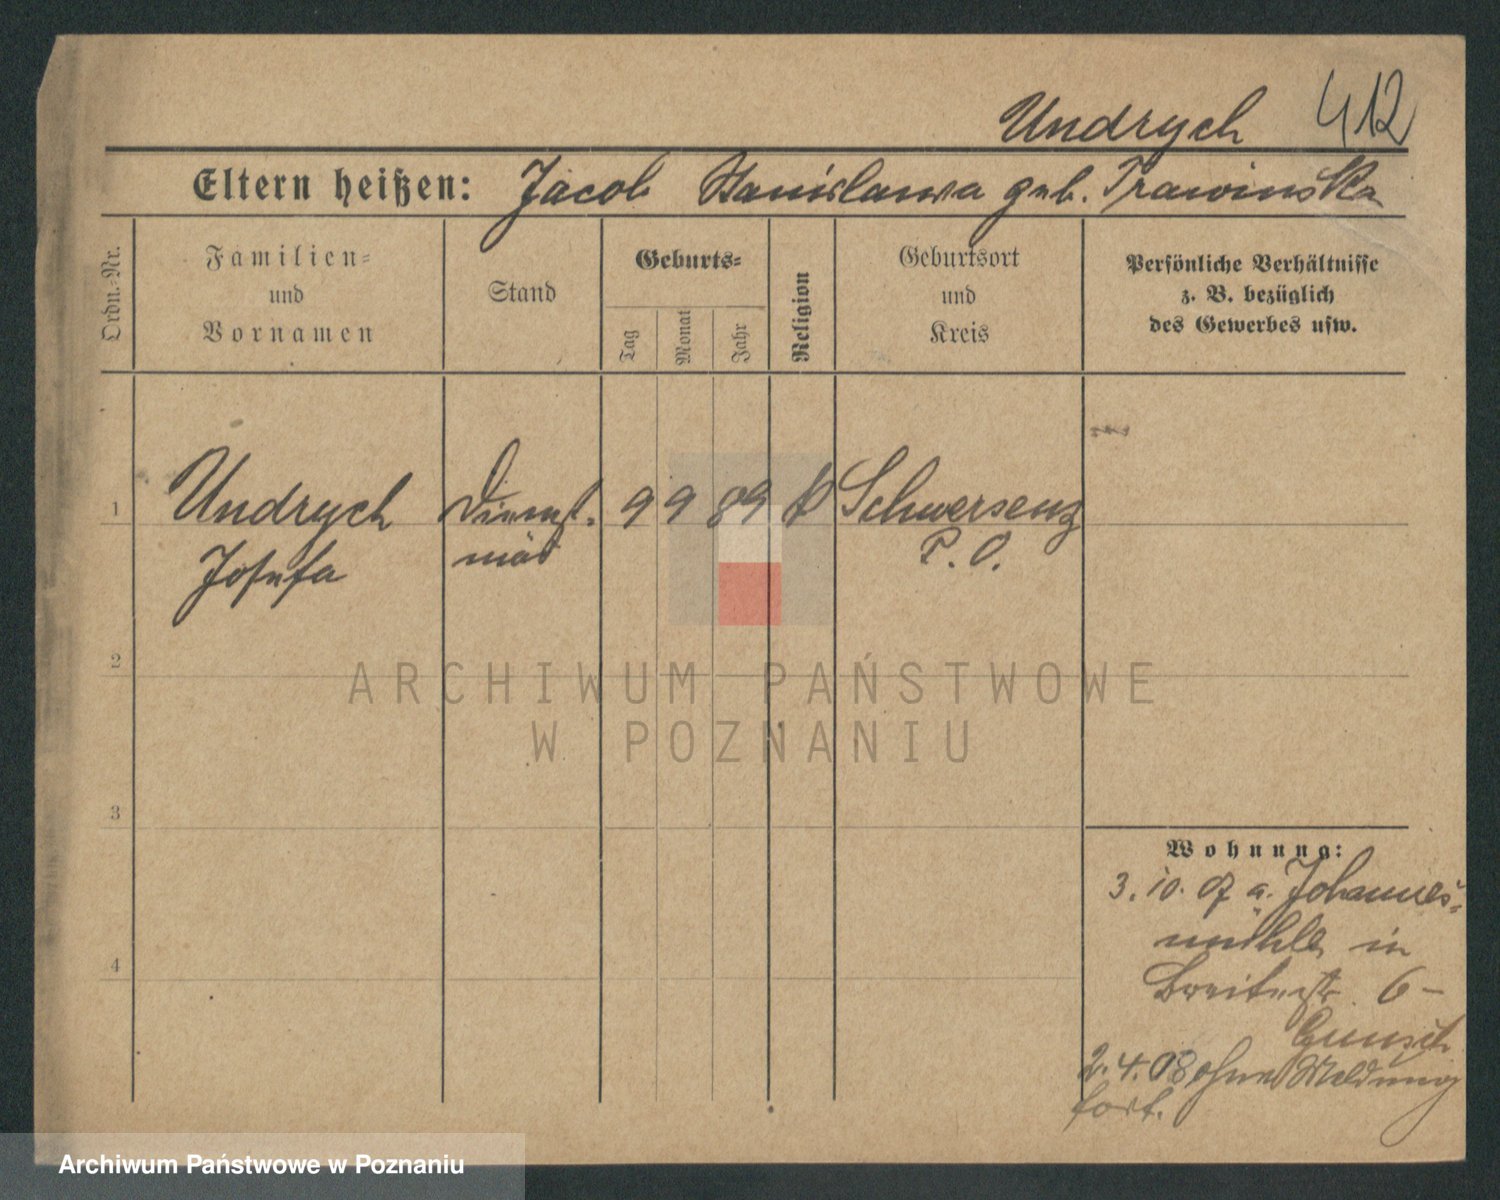 Undrych 412
Eltern heißen: Jacob Stanislawa geb. Trawinska
Ordn.-Nr.
Familien-
und
Vornamen
Stand
Geburts-
Tag
Monat
Jahr
Religion
Geburtsort
und
Kreis
Persönliche Verhältnisse
z. B. bezüglich
des Gewerbes usw.
1 Undrych Dienst- 9 9 89 k Schwersenz
Josefa mäd P. O.
2
3
4
Wohnung:
3. 10. 07 a. Johannes-
mühle in
Breitestr. 6 -
2. 4. 08 ohne Meldung
fort.
ARCHIWUM PAŃSTWOWE
W POZNANIU
Archiwum Państwowe w Poznaniu